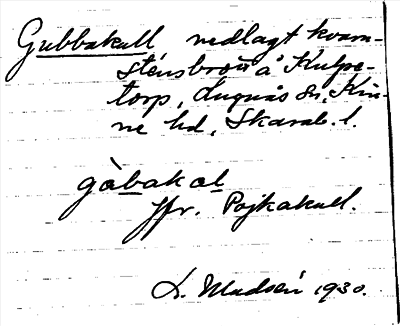 Gubbakull nedlagt kvarn-
stensbrott å Kulpe-
torp, Lugnås sn, Kin-
ne hd, Skarab. l.
gàbakal
Jfr. Pojkakull.
L. Madsén 1930.